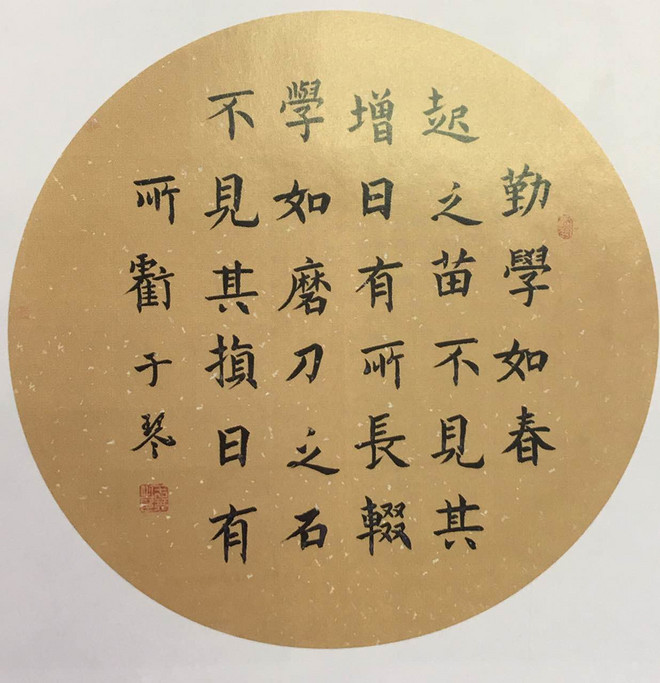 勤學如春
起之苗不見其
增日有所長輟
學如磨刀之石
不見其損日有
所虧子琴